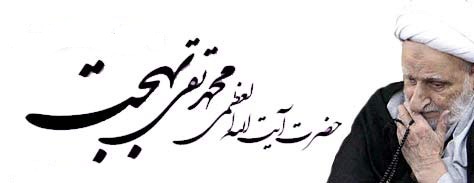 حضرت آیت الله العظمی محمد تقی بهجت